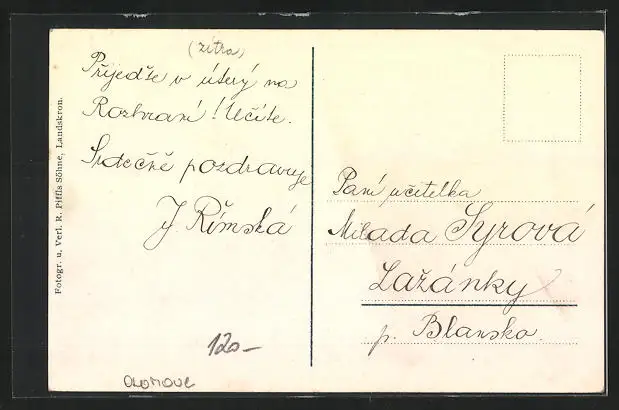 (zítra)
Přijedťe v úterý na
Rozhraní! Učíte.
Srdečně pozdravuje
J. Římská
120-
OLOMOUC
Fotogr. u. Verl. R. Piffls Söhne, Landskron.
Paní učitelka
Milada Syrová
Lažánky
p. Blansko.